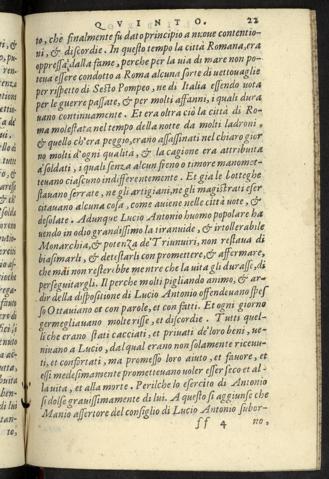 QVINTO. 22
to, che finalmente fu dato principio a nuoue contentio
ni, & discordie. In questo tempo la città Romana, era
oppressa dalla fame, perche per la uia di mare non po-
teua essere condotto a Roma alcuna sorte di uettouaglie
per rispetto di Sesto Pompeo, ne di Italia essendo uota
per le guerre passate, & per molti affanni, i quali dura
uano continuamente. Et era oltra ciò la città di Ro-
ma molestata nel tempo della notte da molti ladroni,
& quello ch'era peggio, erano assassinati nel chiaro gior
no molti d'ogni qualità, & la cagione era attribuita
a'soldati, i quali senza alcun freno o timore manomet-
teuano ciascuno indifferentemente. Et gia le botteghe
stauano serrate, ne gli artigiani, ne gli magistrati eser
citauano alcuna cosa, come auiene nelle città uote, &
desolate. Adunque Lucio Antonio huomo popolare ha
uendo in odio grandissimo la tirannide, & irtollerabile
Monarchia, & potenza de' Triunuiri, non restaua di
biasimarli, & detestarli con promettere, & affermare,
che mai non resterebbe mentre che la uita gli durasse, di
perseguitargli. Il perche molti pigliando animo, & ar-
dir della dispositione di Lucio Antonio offendeuano spes
so Ottauiano et con parole, et con fatti. Et ogni giorno
germogliauano molte risse, et discordie. Tutti quel-
li che erano stati cacciati, et priuati de' loro beni, ue-
niuano a Lucio, dal qual erano non solamente riceuu-
ti, et confortati, ma promesso loro aiuto, et fauore, et
essi medesimamente prometteuano uoler esser seco et al-
la uita, et alla morte. Perilche lo esercito di Antonio
si dolse grauissimamente di lui. A questo si aggiunse che
Manio assertore del consiglio di Lucio Antonio subor-
ff 4 no,